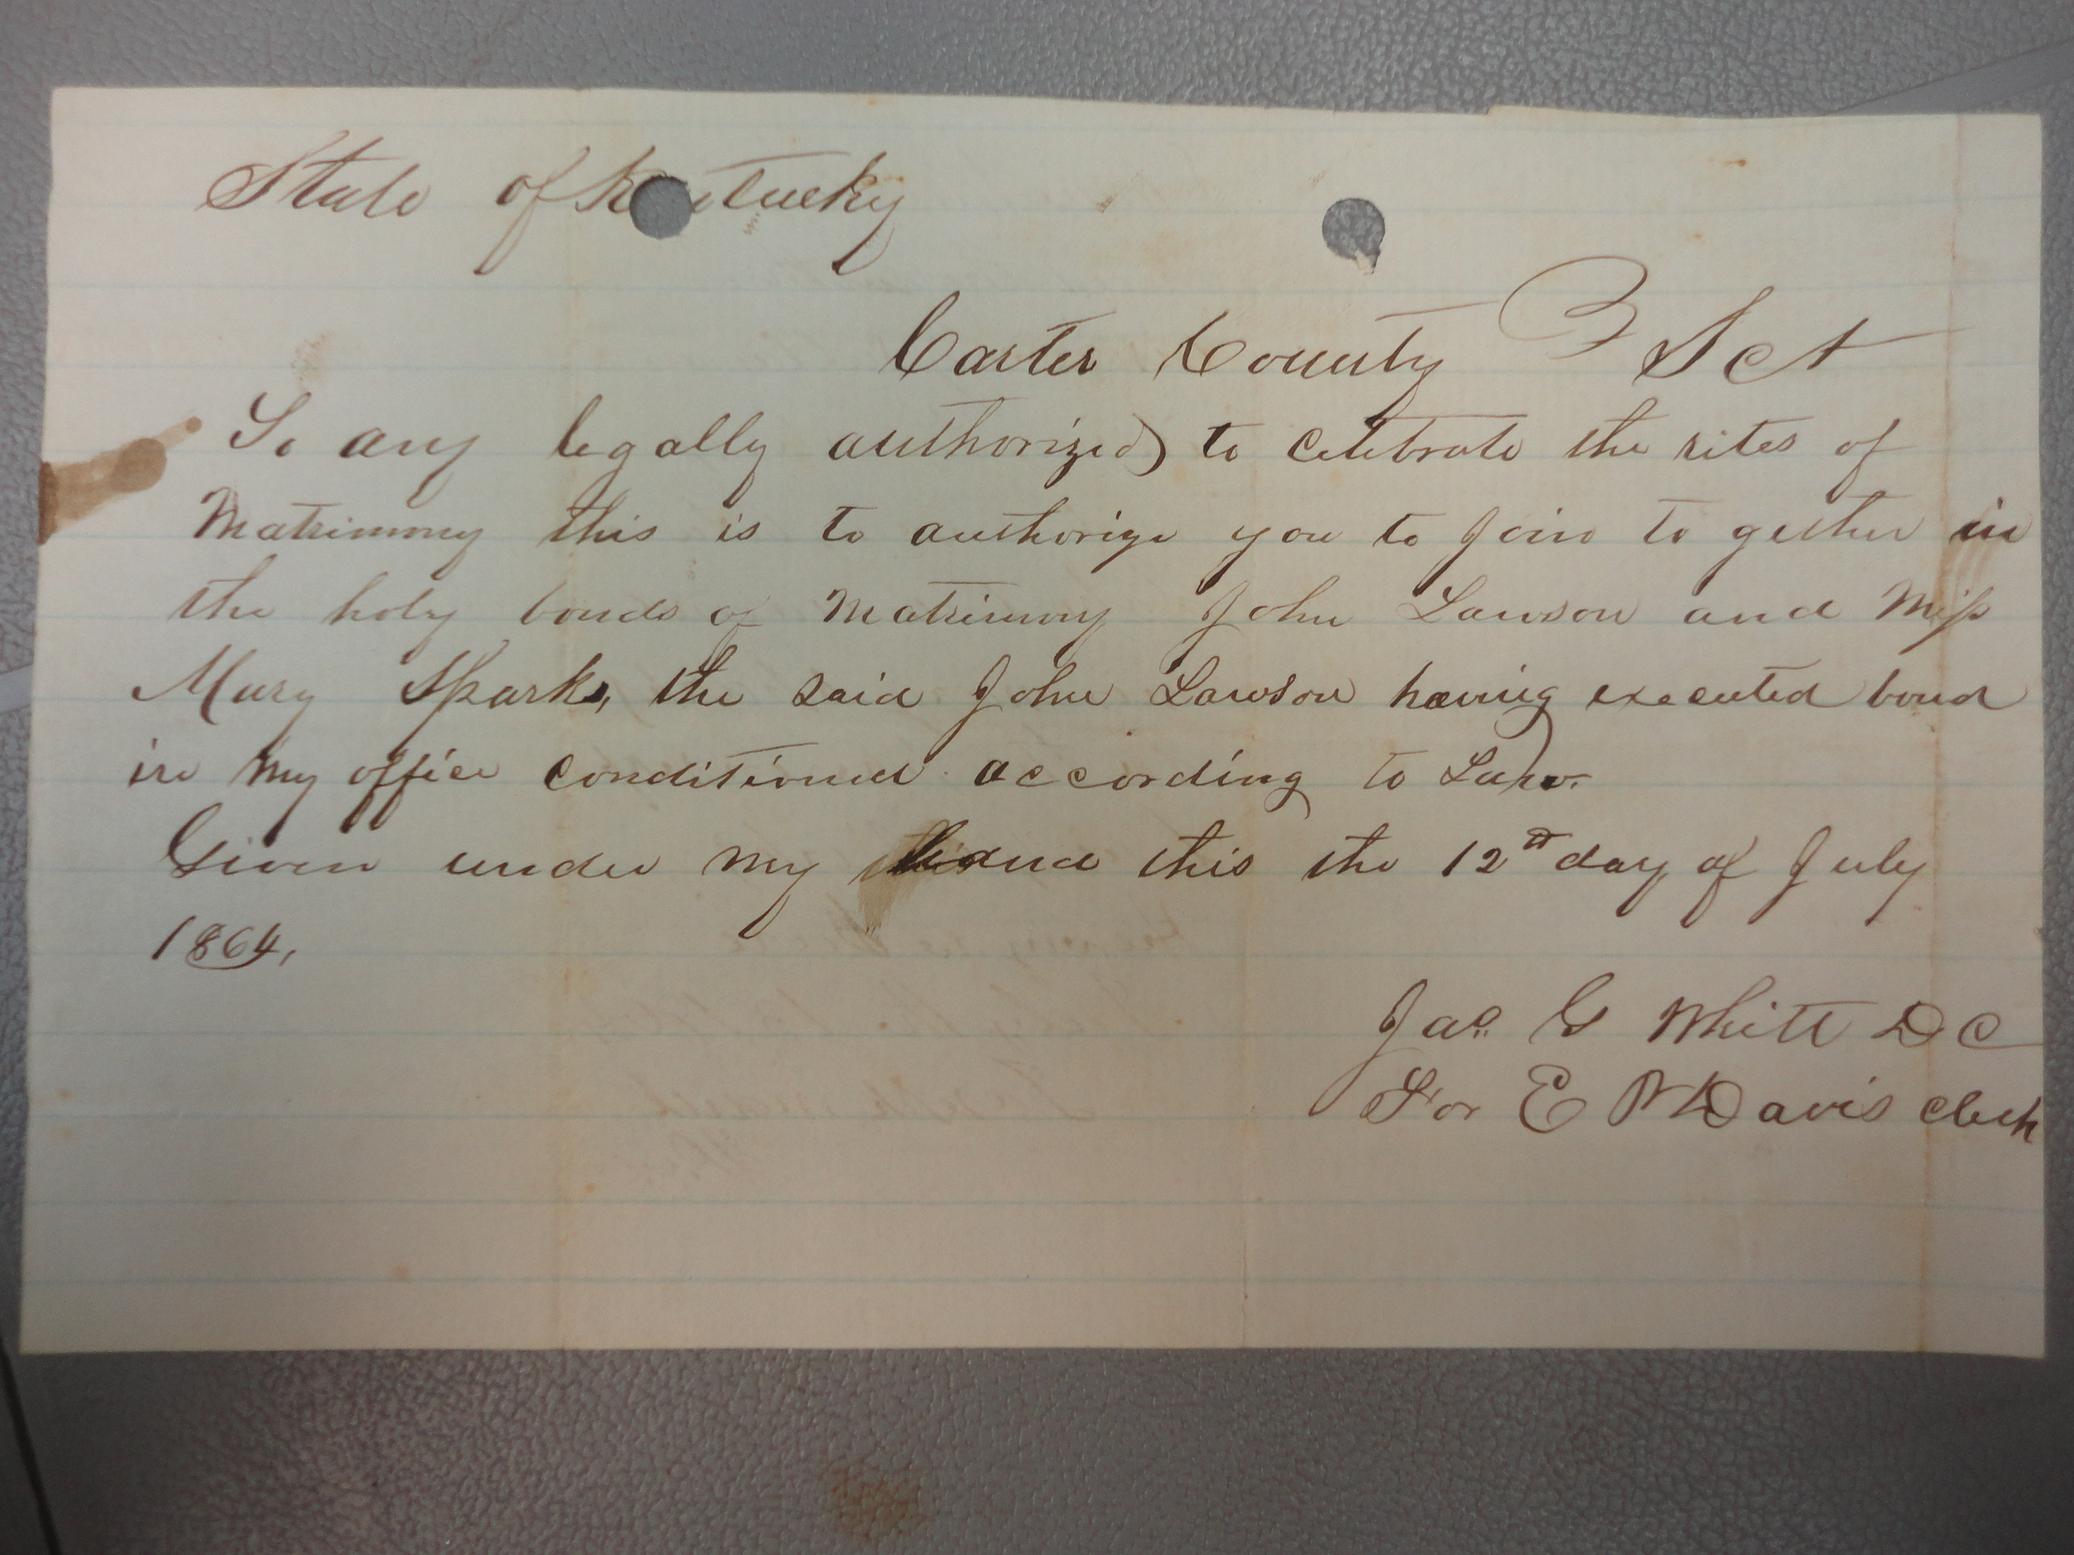 State of Kentucky
Carter County } Sct
To any legally authorized to celebrate the rites of
Matrimony this is to authorize you to Join to gether in
the holy bonds of Matrimony John Lawson and Miss
Mary Sparks, the said John Lawson having executed bond
in my office conditioned according to Law.
Given under my hand this the 12th day of July
1864,
Jas. G Whitt D C
For E Davis clerk